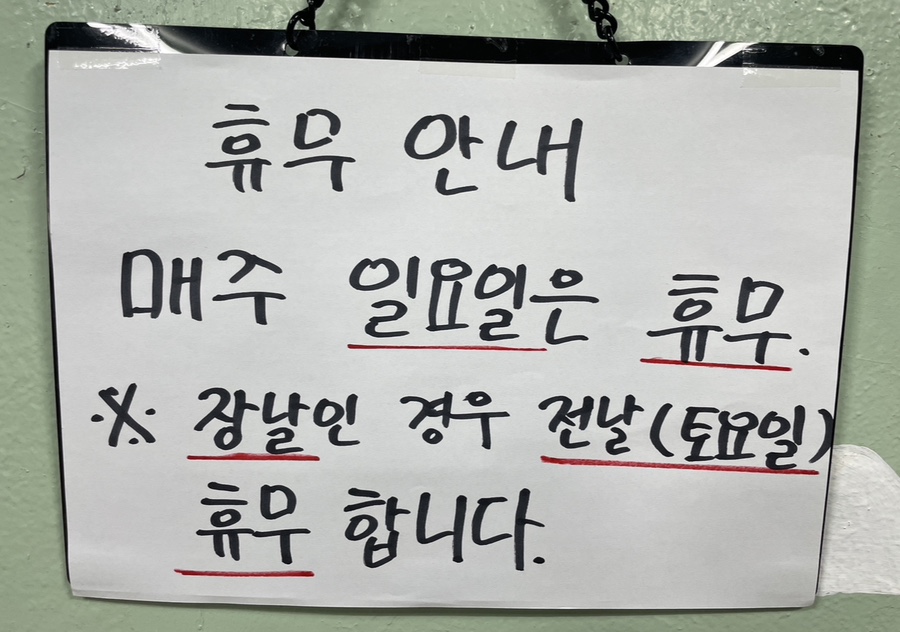 휴무 안내
매주 일요일은 휴무.
※ 장날인 경우 전날(토요일)
휴무 합니다.